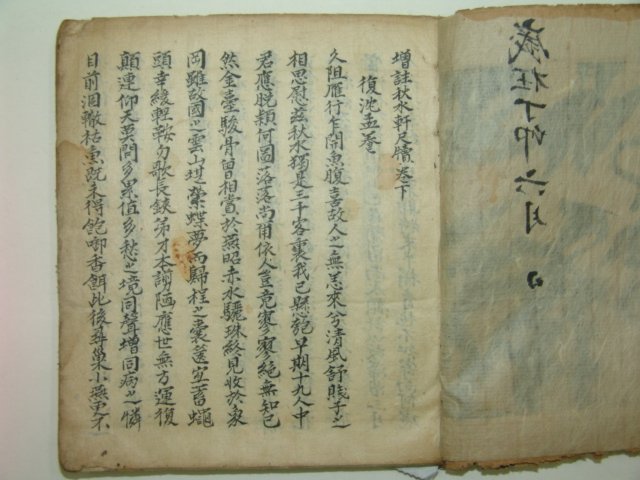 歲在丁卯六月 日
增註秋水軒尺牘卷下
復沈孟養
久阻雁行乍開魚腹喜故人之無恙來兮清風舒賤子之
相思慰玆秋水獨是三千客裏我已懸匏早期十九人中
君應脫穎何圖落落尚甫依人豈竟寥寥絶無知己
然金臺駿骨曾相賞於燕昭赤水驪珠終見收於象
罔雖故國之雲山堪縈蝶夢而歸程之囊篋宜蓄蠅
頭幸緩輕鞍勿歌長鋏弟才本謭陋應世無方運復
顚連仰天莫問多累值多愁之境同聲增同病之憐
目前涸轍枯魚旣未得飽啣香餌比後尋巢小燕更不